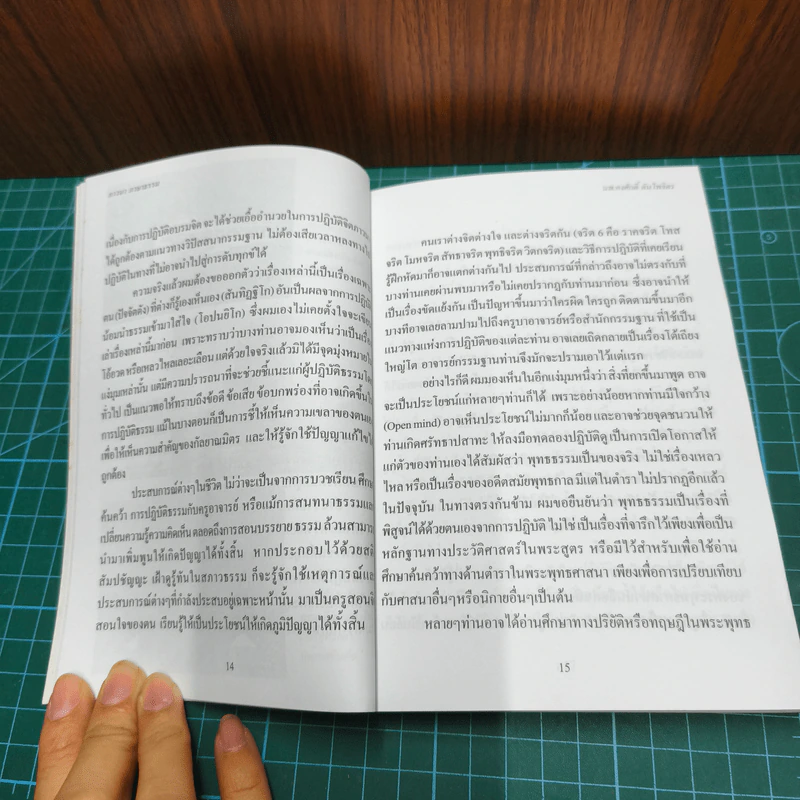 ธรรมะ ภาษาธรรม
เนื่องกับการปฏิบัติอบรมจิต จะได้ช่วยเอื้ออำนวยในการปฏิบัติจิตภาวนา
ได้ถูกต้องตามแนวทางวิปัสสนากรรมฐาน ไม่ต้องเสียเวลาหลงทางไป
ปฏิบัติในทางที่ไม่อาจนำไปสู่การดับทุกข์ได้
ความจริงแล้วผมต้องขอออกตัวว่าเรื่องเหล่านี้เป็นเรื่องเฉพาะ
ตน (ปัจจัตตัง) ที่ต่างก็รู้องเห็นเอง (สันทิฏฐิโก) อันเป็นผลจากการปฏิบัติ
น้อมนำธรรมเข้ามาใส่ใจ (โอปนยิโก) ซึ่งผมเองไม่เคยตั้งใจจะเขียน
เล่าเรื่องเหล่านี้มาก่อน เพราะทราบว่าบางท่านอาจมองเห็นว่าเป็นเรื่อง
โอ้อวด หรือเหลวไหลเลอะเลือน แต่ด้วยใจจริงแล้วมิได้มีจุดมุ่งหมายใน
แง่มุมเหล่านั้น แต่มีความปรารถนาที่จะช่วยชี้แนะแก่ผู้ปฏิบัติธรรมโดย
ทั่วไป เป็นแนวพอให้ทราบถึงข้อดี ข้อเสีย ข้อบกพร่องที่อาจเกิดขึ้นใน
การปฏิบัติธรรม แม้ในบางตอนก็เป็นการชี้ให้เห็นความเขลาของตนเอง
เพื่อให้เห็นความสำคัญของกัลยาณมิตร และให้รู้จักใช้ปัญญาแก้ไขให้
ถูกต้อง
ประสบการณ์ต่างๆในชีวิต ไม่ว่าจะเป็นจากการบวชเรียน ศึกษา
ค้นคว้า การปฏิบัติธรรมกับครูอาจารย์ หรือแม้การสนทนาธรรมแลก
เปลี่ยนความรู้ความคิดเห็น ตลอดถึงการสอนบรรยายธรรม ล้วนสามารถ
นำมาเพิ่มพูนให้เกิดปัญญาได้ทั้งสิ้น หากประกอบไว้ด้วยสติ
สัมปชัญญะ เฝ้าดูรู้ทันในสภาวธรรม ก็จะรู้จักใช้เหตุการณ์และ
ประสบการณ์ต่างๆที่กำลังประสบอยู่เฉพาะหน้านั้น มาเป็นครูสอนจิต
สอนใจของตน เรียนรู้ให้เป็นประโยชน์ให้เกิดภูมิปัญญาได้ทั้งสิ้น
14
คนเราต่างจิตต่างใจ และต่างจริตกัน (จริต 6 คือ ราคจริต โทส
จริต โมหจริต สัทธาจริต พุทธิจริต วิตกจริต) และวิธีการปฏิบัติที่เคยเรียน
รู้ฝึกหัดมาก็อาจแตกต่างกันไป ประสบการณ์ที่กล่าวถึงอาจไม่ตรงกับที่
บางท่านเคยผ่านพบมาหรือไม่เคยปรากฏกับท่านมาก่อน ซึ่งอาจนำให้
เป็นเรื่องขัดแย้งกัน เป็นปัญหาขึ้นมาว่าใครผิด ใครถูก ติดตามขึ้นมาอีก
บางทีอาจเลยลามปามไปถึงครูบาอาจารย์หรือสำนักกรรมฐาน ที่ใช้เป็น
แนวทางแห่งการปฏิบัติของแต่ละท่าน อาจเลยเถิดกลายเป็นเรื่องโต้เถียง
ใหญ่โต อาจารย์กรรมฐานท่านจึงมักจะปรามเอาไว้แต่แรก
อย่างไรก็ดี ผมมองเห็นในอีกแง่มุมหนึ่งว่า สิ่งที่ยกขึ้นมาพูด อาจ
จะเป็นประโยชน์แก่หลายๆท่านก็ได้ เพราะอย่างน้อยหากท่านมีใจกว้าง
(Open mind) อาจเห็นประโยชน์ไม่มากก็น้อย และอาจช่วยจุดชนวนให้
ท่านเกิดศรัทธาปสาทะ ให้ลงมือทดลองปฏิบัติดู เป็นการเปิดโอกาสให้
แก่ตัวของท่านเองได้สัมผัสว่า พุทธธรรมเป็นของจริง ไม่ใช่เรื่องเหลว
ไหล หรือเป็นเรื่องของอดีตสมัยพุทธกาล มีแต่ในตำรา ไม่ปรากฏอีกแล้ว
ในปัจจุบัน ในทางตรงกันข้าม ผมขอยืนยันว่า พุทธธรรมเป็นเรื่องที่
พิสูจน์ได้ด้วยตนเองจากการปฏิบัติ ไม่ใช่ เป็นเรื่องที่จารึก ไว้เพียงเพื่อเป็น
หลักฐานทางประวัติศาสตร์ในพระสูตร หรือมีไว้สำหรับเพื่อใช้อ่าน
ศึกษาค้นคว้าทางด้านตำราในพระพุทธศาสนา เพียงเพื่อการเปรียบเทียบ
กับศาสนาอื่นๆหรือนิกายอื่นๆเป็นต้น
หลายๆท่านอาจได้อ่านศึกษาทางปริยัติหรือทฤษฎีในพระพุทธ
15